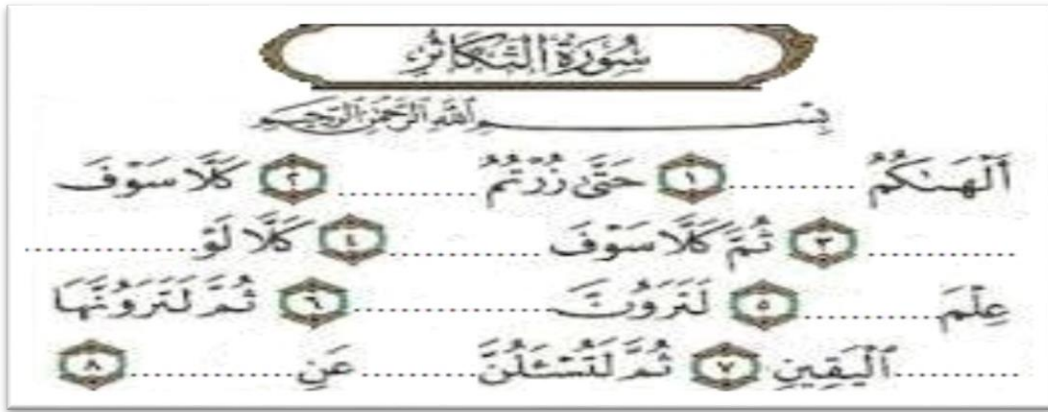 سُورَةُ التَّكَاثُرِ
بِسْمِ ٱللَّهِ ٱلرَّحْمَٰنِ ٱلرَّحِيمِ
أَلْهَىٰكُمُ ............ ١ حَتَّىٰ زُرْتُمُ ............ ٢ كَلَّا سَوْفَ
............ ٣ ثُمَّ كَلَّا سَوْفَ ............ ٤ كَلَّا لَوْ ............
عِلْمَ ............ ٥ لَتَرَوُنَّ ............ ٦ ثُمَّ لَتَرَوُنَّهَا
............ ٱلْيَقِينِ ٧ ثُمَّ لَتُسْـَٔلُنَّ ............ عَنِ ............ ٨